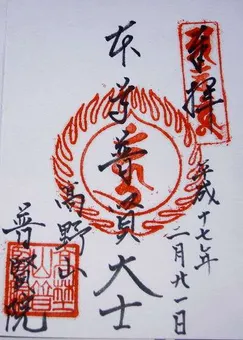 平成十七年
二月廿一日
本尊普賢大士
高野山
普賢院